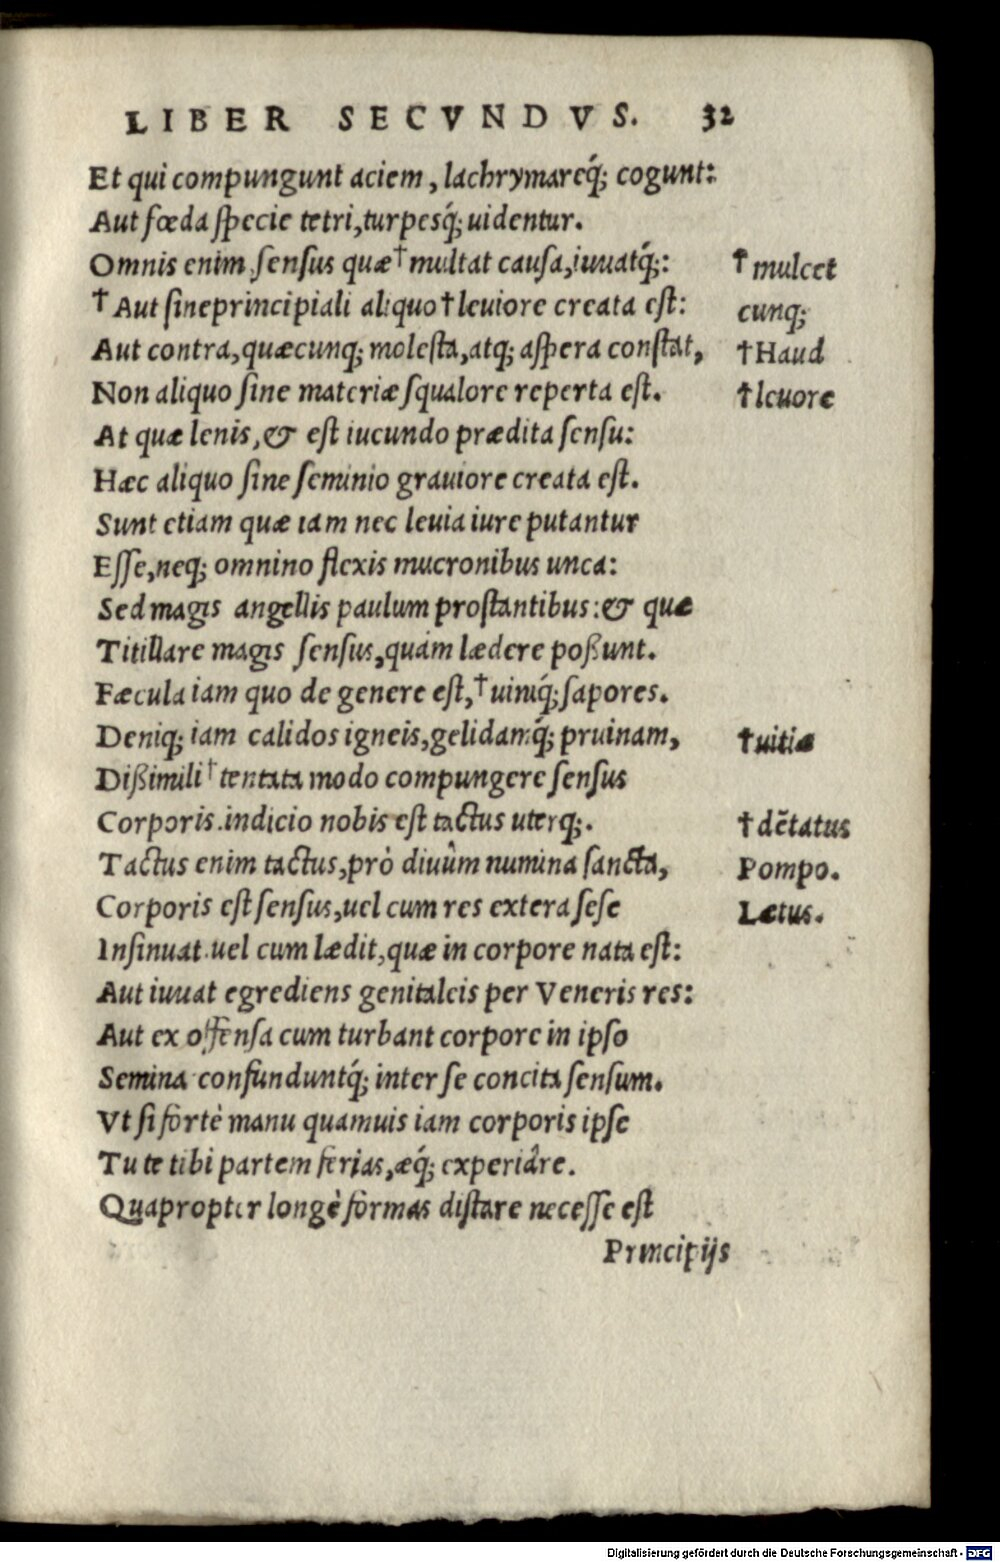 LIBER SECVNDVS. 32
Et qui compungunt aciem, lachrymareq́; cogunt:
Aut fœda specie tetri, turpesq́; uidentur.
Omnis enim sensus quæ † multat causa, iuuatq́;: † mulcet
† Aut sine principiali aliquo † leuiore creata est: cunq;
Aut contra, quæcunq; molesta, atq; aspera constat, † Haud
Non aliquo sine materiæ squalore reperta est. † leuore
At quæ lenis, & est iucundo prædita sensu:
Hæc aliquo sine seminio grauiore creata est.
Sunt etiam quæ iam nec leuia iure putantur
Esse, neq; omnino flexis mucronibus unca:
Sed magis angellis paulum prostantibus: & quæ
Titillare magis sensus, quàm lædere poßunt.
Fæcula iam quo de genere est, † uiniq́; sapores.
Deniq; iam calidos igneis, gelidamq́; pruinam, † uitiæ
Dißimili † tentata modo compungere sensus
Corporis. indicio nobis est tactus uterq;. † dẽtatus
Tactus enim tactus, prò diuûm numina sancta, Pompo.
Corporis est sensus, uel cum res extera sese Lætus.
Insinuat. uel cum lædit, quæ in corpore nata est:
Aut iuuat egrediens genitaleis per Veneris res:
Aut ex offensa cum turbant corpore in ipso
Semina confunduntq́; inter se concita sensum.
Vt si fortè manu quamuis iam corporis ipse
Tu te tibi partem ferias, æq́; experiâre.
Quapropter longè formas distare necesse est
Principijs
Digitalisierung gefördert durch die Deutsche Forschungsgemeinschaft - DFG